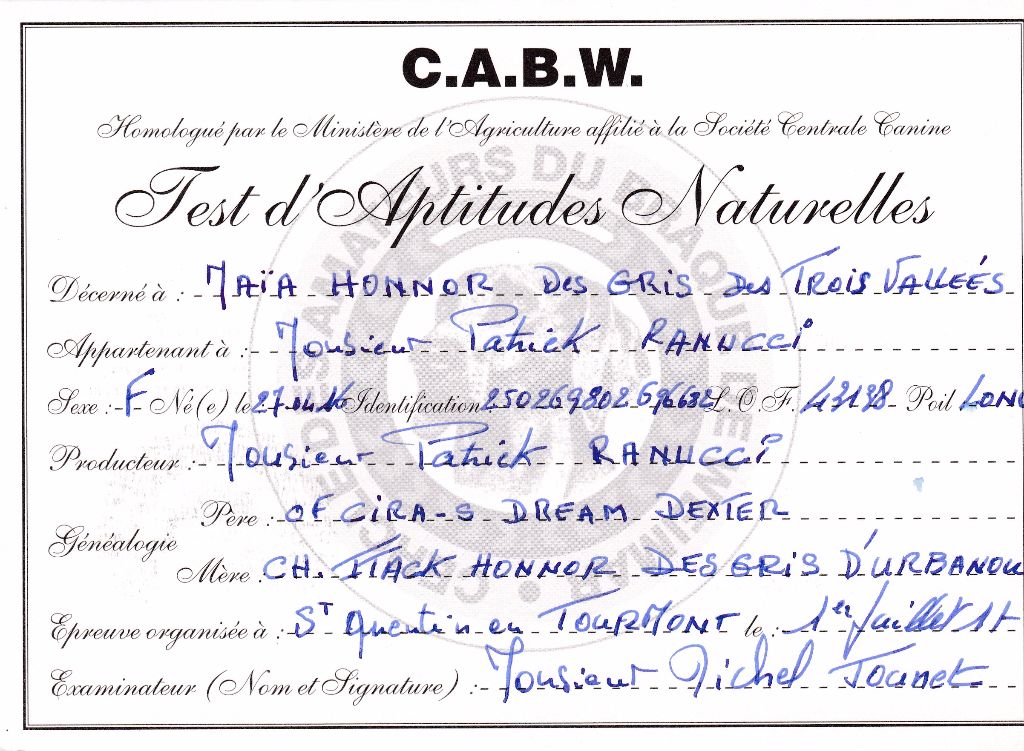 C.A.B.W.
Homologué par le Ministère de l'Agriculture affilié à la Société Centrale Canine
Test d'Aptitudes Naturelles
CERCLE DES AMATEURS DU BRAQUE DE WEIMAR
Décerné à : MAÏA HONNOR DES GRIS DES TROIS VALLEÉS
Appartenant à : Monsieur Patrick RANUCCI
Sexe : F Né(e) le 27.04.16 Identification 250269802696632 L.O.F. 43138 Poil LONG
Producteur : Monsieur Patrick RANUCCI
Père : OF CIRA-S DREAM DEXTER
Généalogie
Mère : CH. HONNOR DES GRIS D'URBANOU
Epreuve organisée à : ST Quentin en TOURMONT le : 1er Juillet 17
Examinateur (Nom et Signature) : Monsieur Michel